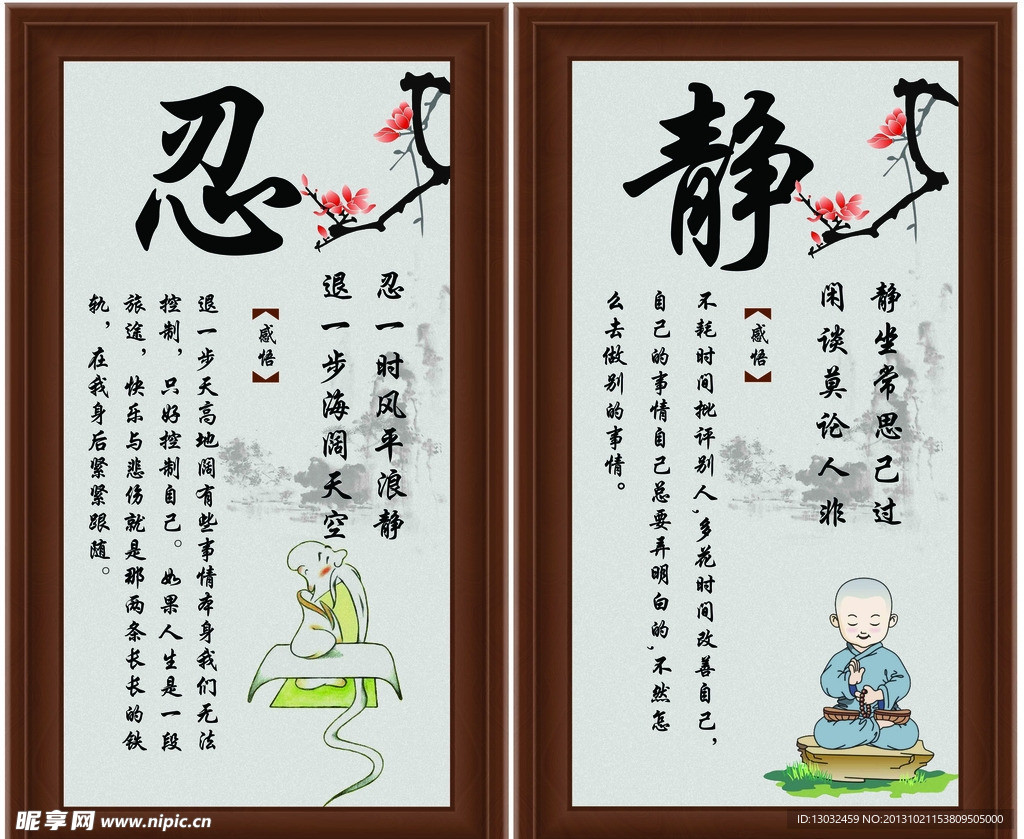 忍
忍一时风平浪静
退一步海阔天空
感悟
退一步天高地阔有些事情本身我们无法
控制，只好控制自己。如果人生是一段
旅途，快乐与悲伤就是那两条长长的铁
轨，在我身后紧紧跟随。
静
静坐常思己过
闲谈莫论人非
感悟
不耗时间批评别人,多花时间改善自己，
自己的事情自己总要弄明白的,不然怎
么去做别的事情。
昵享网 www.nipic.cn
ID:13032459 NO:20131021153809505000